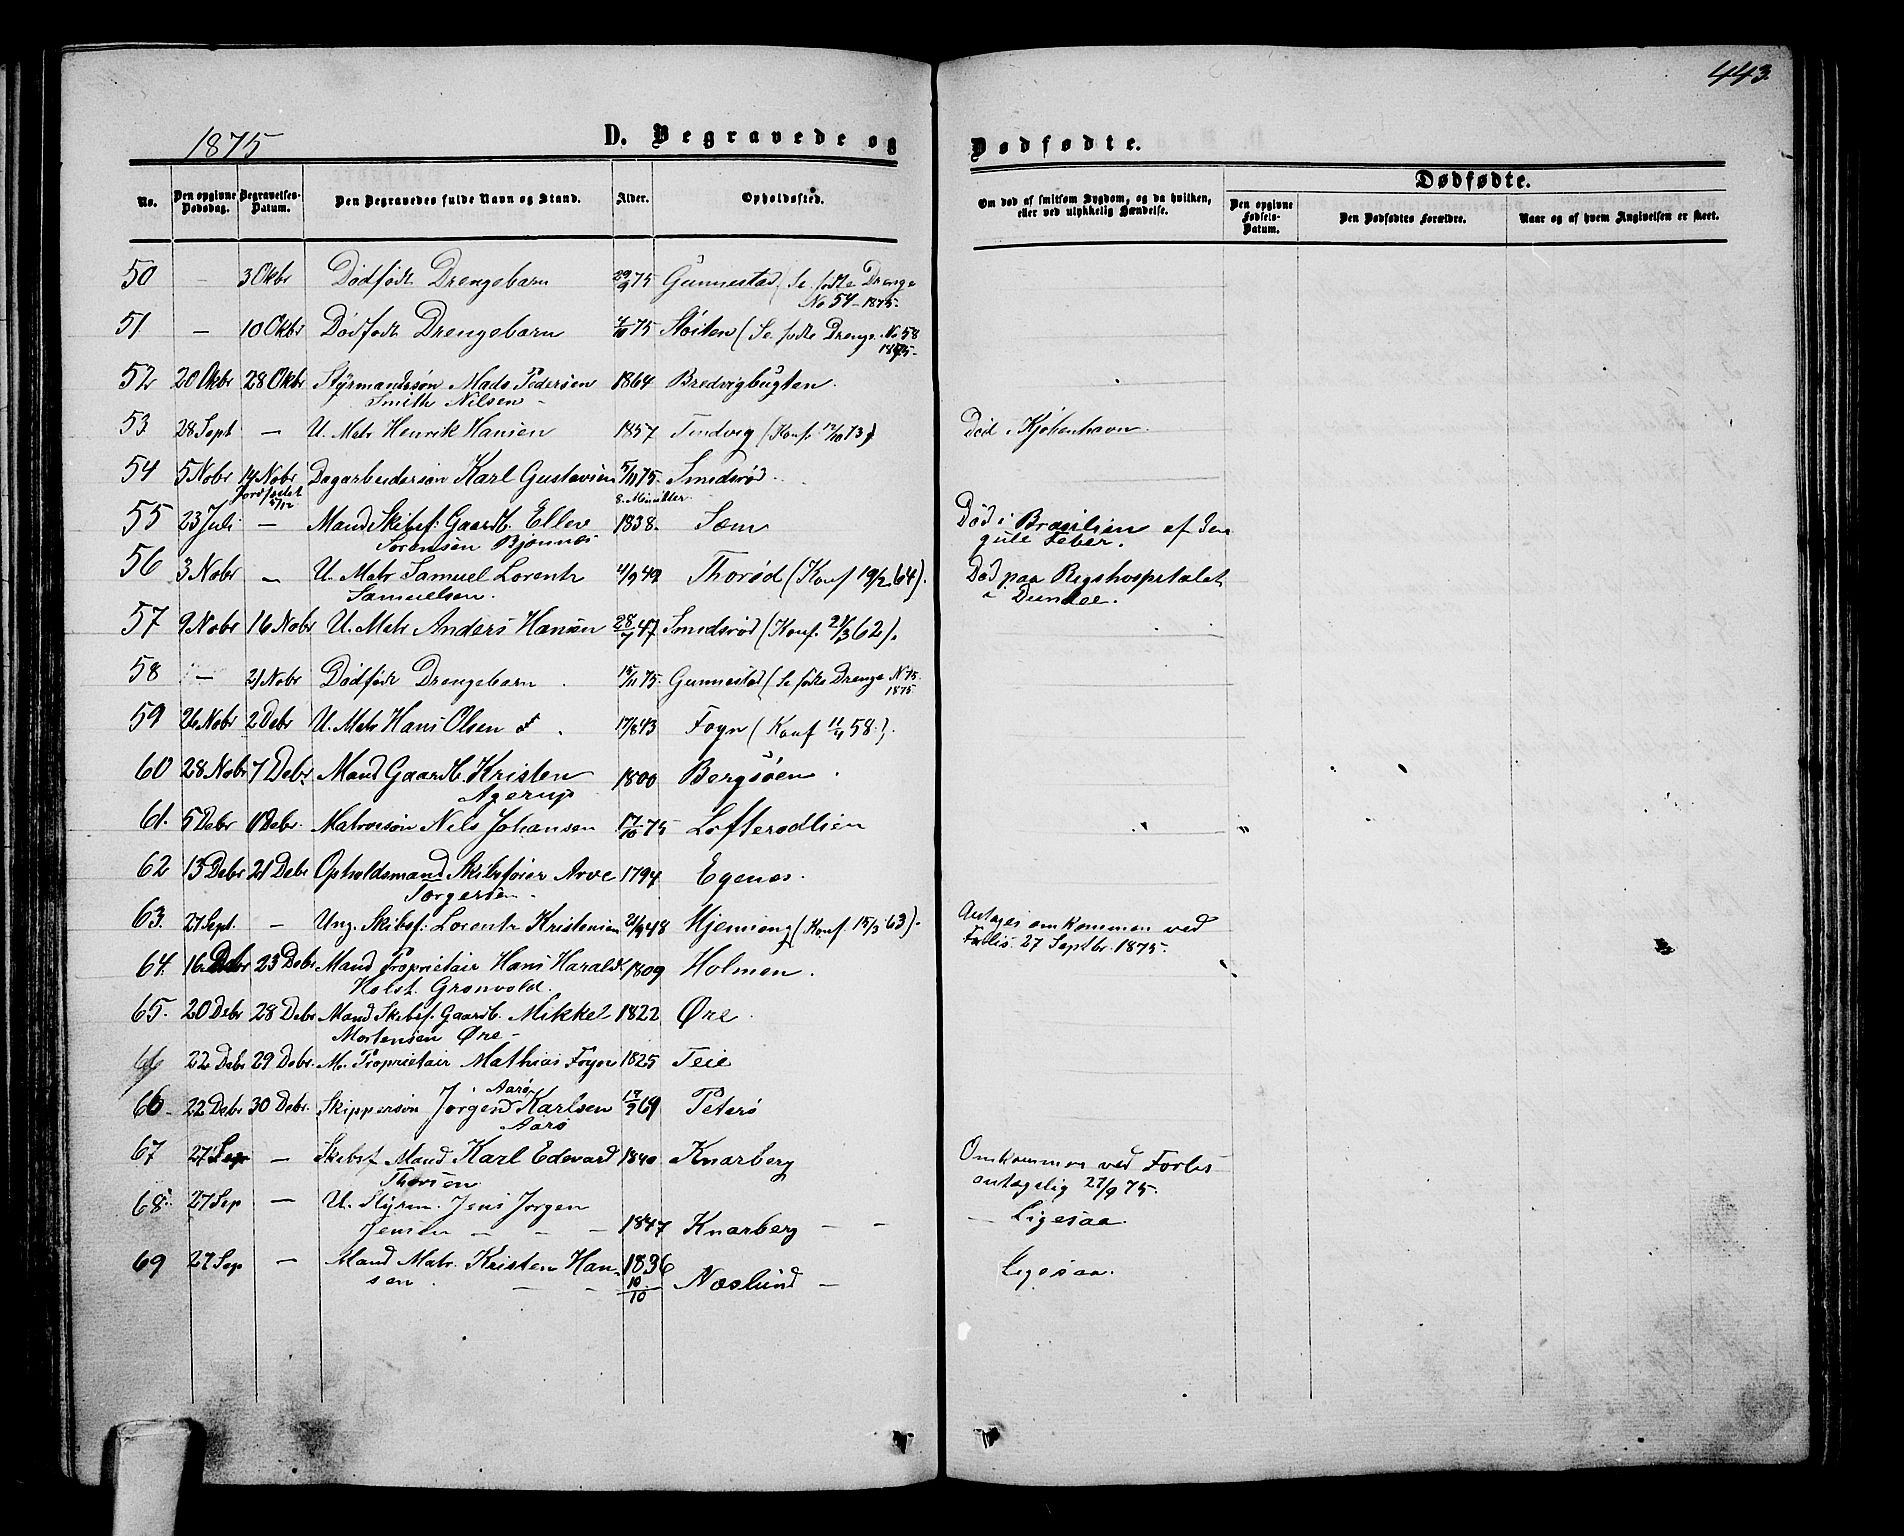 443.
1875
D. Begravede og
Dødfødte.
No.
Den opgivne Dødsdag.
Begravelses-Datum.
Den Begravedes fulde Navn og Stand.
Alder.
Opholdssted.
Om død af smitsom Sygdom, og da hvilken, eller ved ulykkelig Hændelse.
Dødfødte.
Den opgivne Fødsels-Datum.
Den Dødfødtes Forældre.
Naar og af hvem Angivelsen er skeet.
50 — 3 Okbr Dødfødt Drengebarn 29/9 75 Gunnestad (Se fødte Drenge
No 54 - 1875.
51 — 10 Okbr Dødfødt Drengebarn 75 Støiten (Se fødte Drenge No 58
1875-
52 20 Okbr 28 Okbr Styrmandssøn Mads Pedersen 1864 Bredvigbugten.
Smith Nilsen -
53 28 Sept — U. Matr Henrik Hansen 1857 Tindvig (Konf. 12/10 73) Død i Kjøbenhavn.
54 5 Nobr 14 Nobr Dagarbeidersøn Karl Gustavsen 5/11 75. Smidsrød
Jordfæstet 5/12 8. Minutter
55 23 Juli — Mand Skibsf. Gaardb. Ellev 1838. Sem Død i Brasilien af den
Sørensen Bjønnes gule Feber.
56 3 Nobr — U. Matr Samuel Lorentz 4/9 49 Thorød (Konf 19/2 64). Død paa Rigshospitalet
Samuelsen. i Dundee.
57 9 Nobr 16 Nobr U. Matr Anders Hansen 28/7 47 Smidsrød (Konf. 2/3 62).
58 — 21 Nobr Dødfødt Drengebarn 15/11 75. Gunnestad (Se fødte Drenge No 75.
1875
59 26 Nobr 2 Debr U. Matr Hans Olsen 17/8 43 Foyn (Konf 11/4 58.).
60 28 Nobr 7 Debr Mand Gaardb. Kristen 1800 Bergsøen.
Agerup
61. 5 Debr 11 Debr. Matrossøn Nils Johansen 17/10 75 Lofterødlien
62 13 Debr 21 Debr Opholdsmand Skibsfører Arve 1794 Egenes.
Torgersen -
63. 27 Sept. — Ung. Skibsf: Lorentz Kristensen 21/9 48 Hjemseng (Konf 15/3 63). Antages omkommen ved
Forlis. 27 Septbr. 1875.
64. 16 Debr 23 Debr Mand Proprietair Hans Harald 1809 Holmen.
Holst. Grønvold.
65. 20 Debr 28 Debr Mand Skibsf. Gaardb. Mikkel 1822 Øre.
Mortensen Øre -
66 22 Debr 29 Debr. M. Proprietair Mathias Foyn 1825 Teie
Aarø
66 - 22 Debr 30 Debr. Skippersøn Jørgen Karlsen 17/9 69 Peterø
Aarø
67 27 Sep — Skibsf Mand Karl Edevard 1840 Knarberg Omkommen ved Forlis
Thorsen antagelig 27/9 75.
68. 27 Sep — U. Styrm. Jens Jørgen
Jensen — — — 1847 Knarberg — — — Ligesaa.
69 27 Sep — Mand Matr. Kristen Han- 1836
sen — — 10/10 Næslund — Ligesaa.